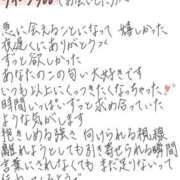 急に会えることになって 嬉しかった
夜遅くにありがとう
ずっと欲しかった
あなたのこの匂い大好きです
いつも以上にくっつきたくなっちゃった
時間いっぱいずっと求め合っていた
ような気がします
抱きしめる強さ 向けられる視線
離れようとしても引き寄せられる瞬間
言葉にされなくても まだ足りないって